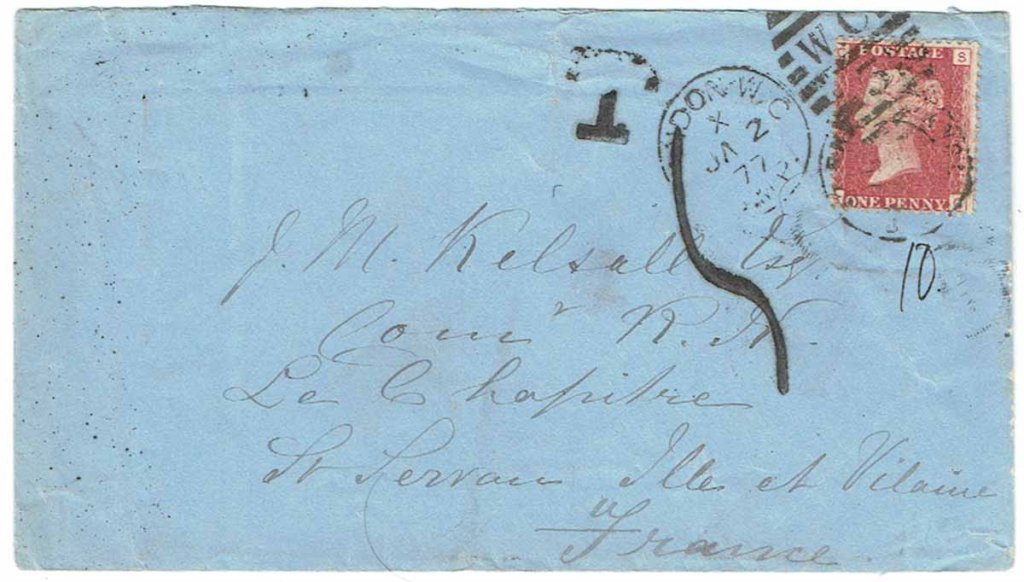 W C
POSTAGE
S
ONE PENNY
T
1
NDON-W.C
X
JA 2
77
10
J. M. Kelsall Esq.
Comr R.N.
Le Chapitre
St Servan Ille et Vilaine
France